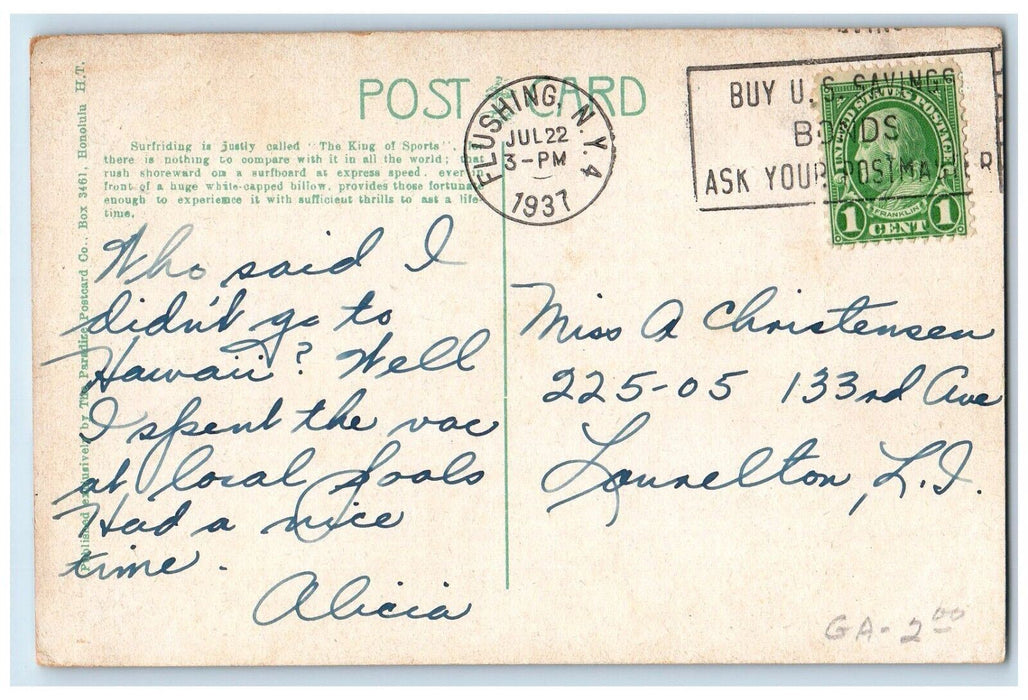 POST CARD
Surfriding is justly called "The King of Sports",
there is nothing to compare with it in all the world; that
rush shoreward on a surfboard at express speed, ever in
front of a huge white-capped billow, provides those fortunate
enough to experience it with sufficient thrills to last a life
time.
Published exclusively by The Paradise Postcard Co., Box 3461, Honolulu H.T.
FLUSHING, N.Y. 4
JUL 22
3-PM
1937
BUY U. S. SAVINGS
BONDS
ASK YOUR POSTMASTER
UNITED STATES POSTAGE
FRANKLIN
1 CENT 1
Who said I
didn't go to
Hawaii? Well
I spent the vac
at local pools
Had a nice
time.
Alicia
Miss A Christensen
225-05 133rd Ave
Laurelton, L.I.
GA-200